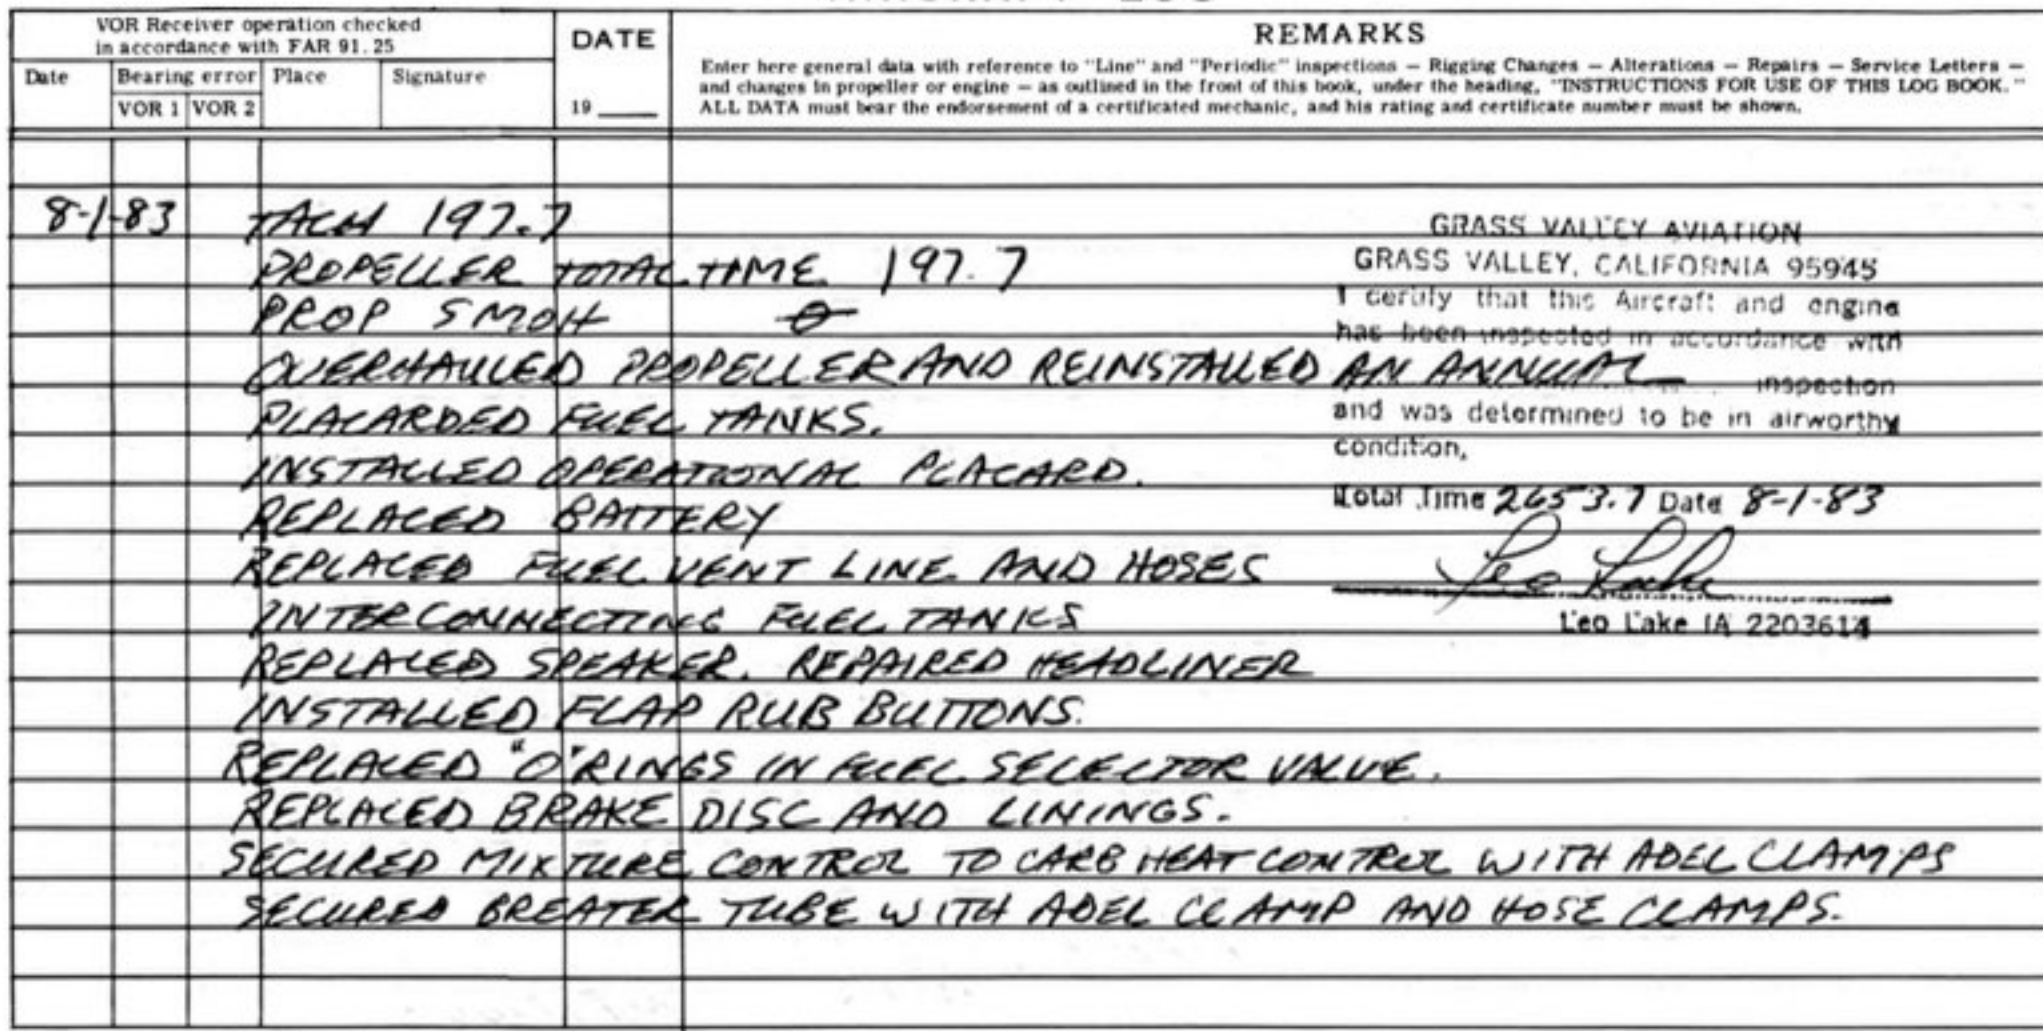 VOR Receiver operation checked
in accordance with FAR 91.25
Date
Bearing error
VOR 1 VOR 2
Place
Signature
DATE
19 ____
REMARKS
Enter here general data with reference to "Line" and "Periodic" inspections — Rigging Changes — Alterations — Repairs — Service Letters —
and changes in propeller or engine — as outlined in the front of this book, under the heading, "INSTRUCTIONS FOR USE OF THIS LOG BOOK."
ALL DATA must bear the endorsement of a certificated mechanic, and his rating and certificate number must be shown.
8-1-83 TACH 197.7
PROPELLER TOTAL TIME 197.7
PROP SMOH 0
OVERHAULED PROPELLER AND REINSTALLED
PLACARDED FUEL TANKS.
INSTALLED OPERATIONAL PLACARD.
REPLACED BATTERY
REPLACED FUEL VENT LINE AND HOSES
INTERCONNECTING FUEL TANKS
REPLACED SPEAKER. REPAIRED HEADLINER
INSTALLED FLAP RUB BUTTONS.
REPLACED "O" RINGS IN FUEL SELECTOR VALUE.
REPLACED BRAKE DISC AND LININGS.
SECURED MIXTURE CONTROL TO CARB HEAT CONTROL WITH ADEL CLAMPS
SECURED BREATER TUBE WITH ADEL CLAMP AND HOSE CLAMPS.
GRASS VALLEY AVIATION
GRASS VALLEY, CALIFORNIA 95945
I certify that this Aircraft and engine
has been inspected in accordance with
AN ANNUAL inspection
and was determined to be in airworthy
condition.
Total Time 2653.7 Date 8-1-83
Leo Lake
Leo Lake IA 2203614